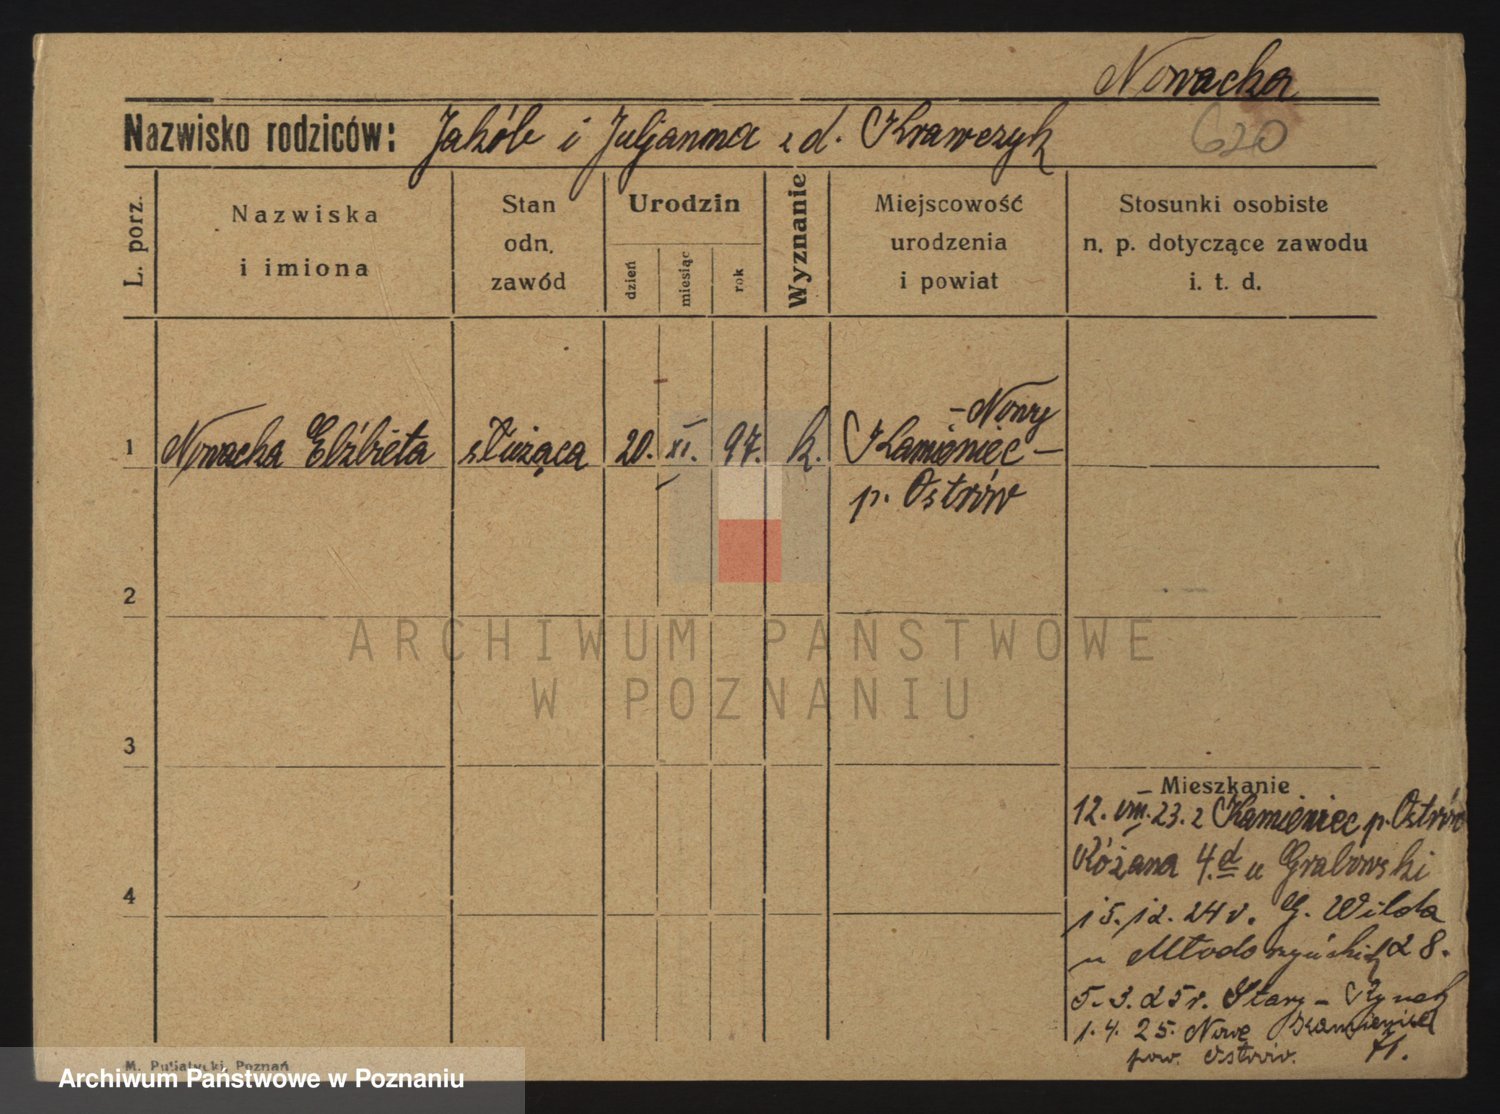 Nowacka
Nazwisko rodziców: Jakób i Juljanna z d. Krawczyk 620
L. porz.
Nazwiska
i imiona
Stan
odn.
zawód
Urodzin
dzień
miesiąc
rok
Wyznanie
Miejscowość
urodzenia
i powiat
Stosunki osobiste
n. p. dotyczące zawodu
i. t. d.
1 Nowacka Elżbieta służąca 20. XI. 97. k. Nowy
Kamieniec –
p. Ostrów
2
3
4
ARCHIWUM PAŃSTWOWE
W POZNANIU
Mieszkanie
12. VIII. 23. z Kamieniec p. Ostrów
Różana 4. d u Grabowski
15. 12. 24 r. G. Wilda
u 28.
5. 3. 25 r. Stary – Rynek
1. 4. 25. Nowe Kamieniec
pow. Ostrów.
M. Putiatycki, Poznań
Archiwum Państwowe w Poznaniu